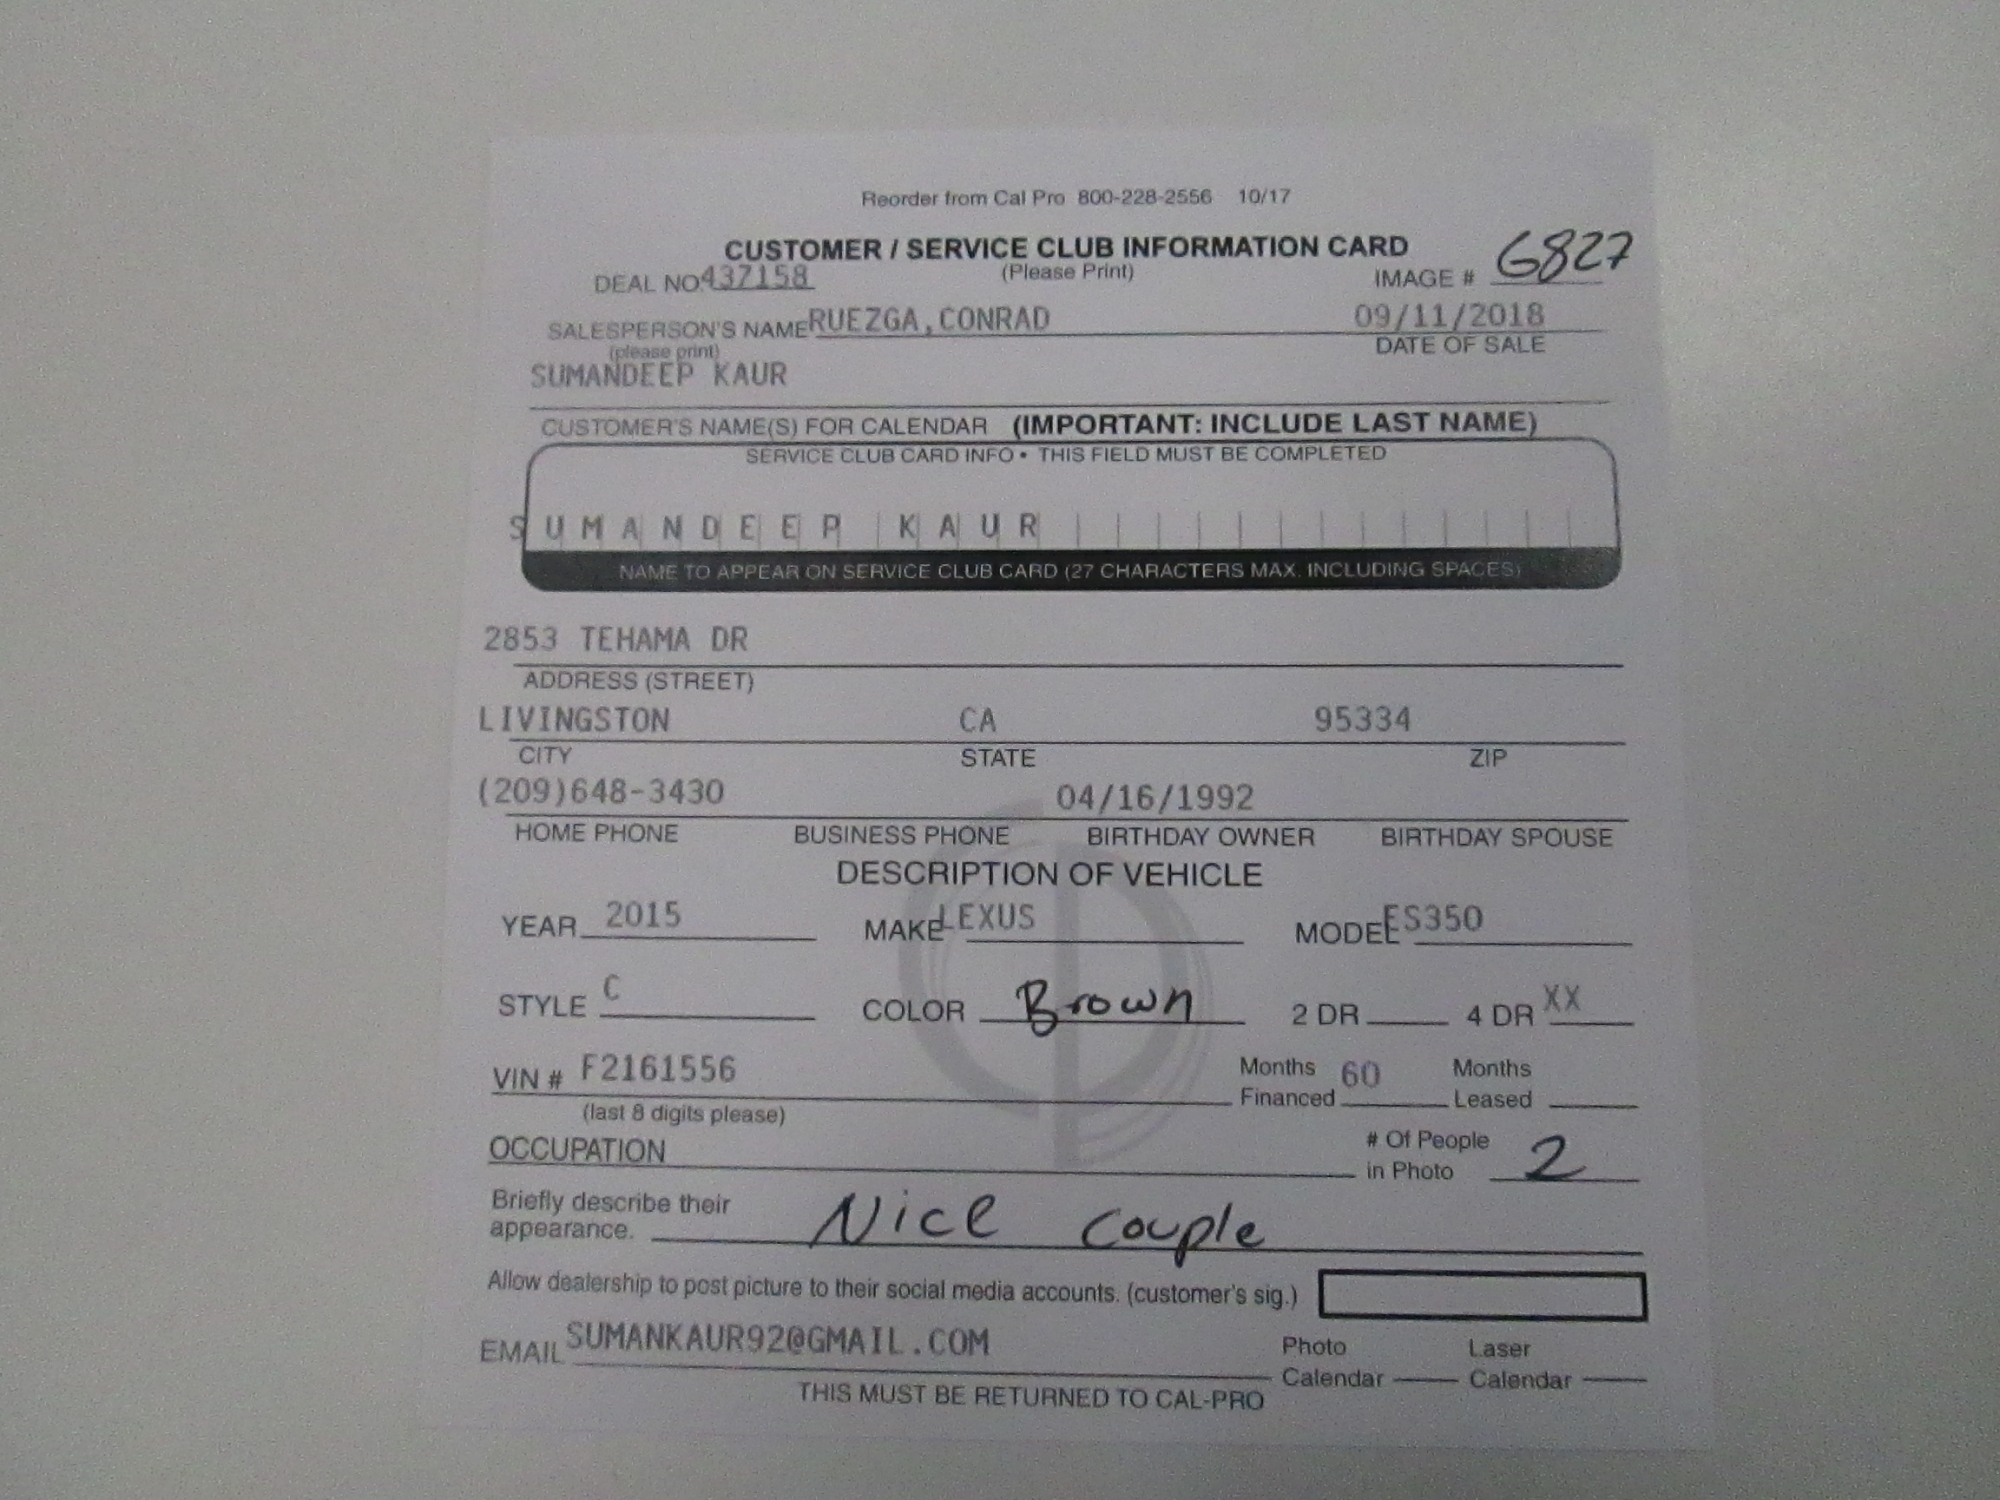 Reorder from Cal Pro 800-228-2556 10/17
CUSTOMER / SERVICE CLUB INFORMATION CARD
(Please Print)
DEAL NO 437158 IMAGE # 6827
SALESPERSON'S NAME RUEZGA, CONRAD 09/11/2018
(please print) DATE OF SALE
SUMANDEEP KAUR
CUSTOMER'S NAME(S) FOR CALENDAR (IMPORTANT: INCLUDE LAST NAME)
SERVICE CLUB CARD INFO • THIS FIELD MUST BE COMPLETED
SUMANDEEP KAUR
NAME TO APPEAR ON SERVICE CLUB CARD (27 CHARACTERS MAX. INCLUDING SPACES)
2853 TEHAMA DR
ADDRESS (STREET)
LIVINGSTON CA 95334
CITY STATE ZIP
(209)648-3430 04/16/1992
HOME PHONE BUSINESS PHONE BIRTHDAY OWNER BIRTHDAY SPOUSE
DESCRIPTION OF VEHICLE
YEAR 2015 MAKE LEXUS MODEL ES350
STYLE C COLOR Brown 2 DR 4 DR XX
VIN # F2161556 Months Financed 60 Months Leased
(last 8 digits please)
OCCUPATION # Of People in Photo 2
Briefly describe their appearance. Nice couple
Allow dealership to post picture to their social media accounts. (customer's sig.)
EMAIL SUMANKAUR92@GMAIL.COM Photo Calendar Laser Calendar
THIS MUST BE RETURNED TO CAL-PRO